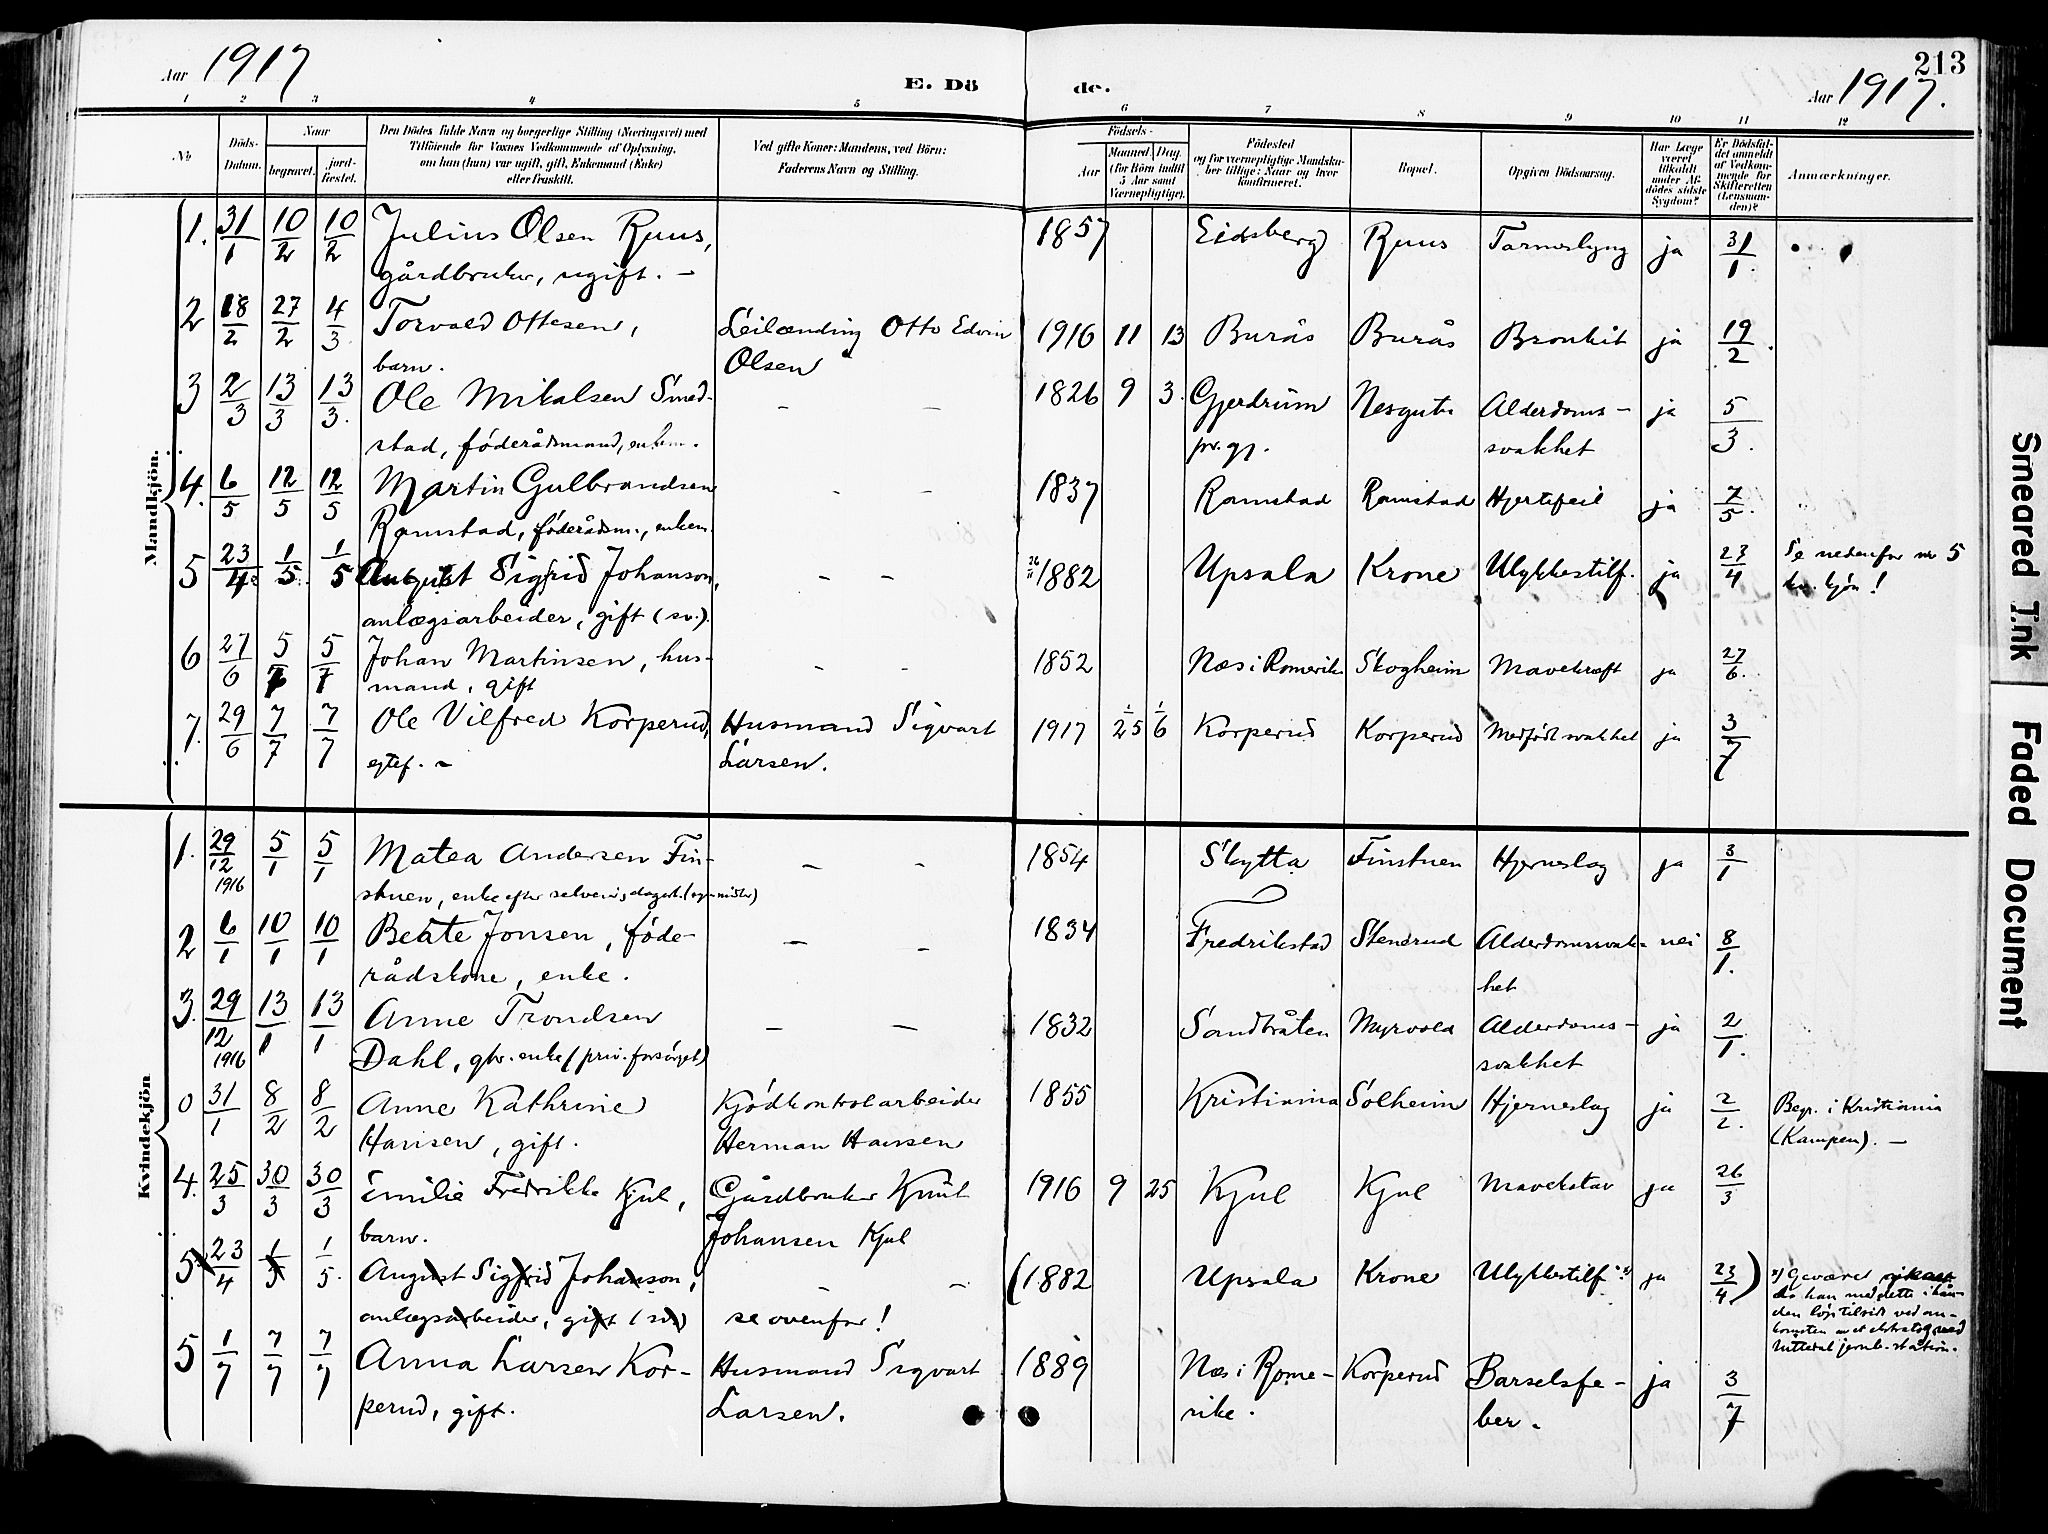 213
Aar 1917 E. Dö de. Aar 1917.
1 2 3 4 5 6 7 8 9 10 11 12
No
Döds-
Datum.
Naar
begravet.
jord-
fæstet.
Den Dödes fulde Navn og borgerlige Stilling (Næringsvei) med
Tilföiende for Voxnes Vedkommende af Oplysning,
om han (hun) var ugift, gift, Enkemand (Enke)
eller fraskilt.
Ved gifte Koner: Mandens, ved Börn:
Faderens Navn og Stilling.
Födsels-
Aar
Maaned. Dag.
(for Börn indtil
5 Aar samt
Værnepligtige).
Födested
og for værnepligtige Mandska-
ber tillige: Naar og hvor
konfirmeret.
Bopæl.
Opgiven Dödsaarsag.
Har Læge
været
tilkaldt
under Af-
dödes sidste
Sygdom?
Er Dödsfal-
det anmeldt
af Vedkom-
mende for
Skifteretten
(Lensman-
den)?
Anmærkninger.
Mandkjön.
1. 31/1 10/2 10/2 Julius Olsen Ruus, 1857 Eidsberg Ruus Tarmslyng ja 31/1.
gårdbruker, ugift. –
2 18/2 27/2 4/3. Torvald Ottesen, Leilænding Otto Edvin 1916 11 13 Burås Burås Bronkit ja 19/2.
barn. Olsen
3 2/3 13/3 13/3. Ole Mikalsen Smed- – – 1826 9 3. Gjerdrum Nesgutu Alderdoms- ja 5/3.
stad, föderådsmand, enkem. pr.gj. svakhet
4. 6/5 12/5 12/5 Martin Gulbrandsen - - 1837 Ramstad Ramstad Hjertefeil ja 7/5.
Ramstad, föderådsm., enkem.
5 23/4 1/5. 1/5 August Sigfrid Johanson, – – 1882 Upsala Krone Ulykkestilf. ja 23/4 Se nedenfor nr 5
anlægsarbeider, gift (sv.). kv. kjön!
6 27/6 5/7 5/7 Johan Martinsen, hus- - - 1852 Næs i Romerike Skogheim Mavekræft ja 27/6.
mand, gift
7. 29/6 7/7 7/7 Ole Vilfred Korperud, Husmand Sigvart 1917 25 6 Korperud Korperud Medfödt svakhet ja 3/7
egtef. – Larsen.
Kvindekjön
1. 29/12 1916 5/1 5/1 Matea Andersen Fin- – - 1854 Skytta Finstuen Hjerneslag ja 3/1
stuen, enke efter selveier,
2 6/1 10/1 10/1 Beate Jonsen, föde- – – 1834 Fredrikstad Stenerud Alderdomssvak- nei 8/1.
rådskone, enke. het
3. 29/12 1916 13/1 13/1 Anne Trondsen – – 1832 Sandbråten Myrvold Alderdoms- ja 2/1.
Dahl, gbr. enke (priv. forsörget) svakhet
0 31/1 8/2 8/2 Anne Kathrine Kjödkontrolarbeider 1855 Kristiania Solheim Hjerneslag ja 2/2. Begr. i Kristiania
Hansen, gift. Herman Hansen (Kampen). –
4. 25/3 30/3 30/3 Emilie Fredrikke Kjul, Gårdbruker Knut 1916 9 25 Kjul Kjul Mavekatar ja 26/3
barn. Johansen Kjul
5 23/4 1/5 1/5. August Sigfrid Johanson, – – (1882 Upsala Krone Ulykkestilf. x) ja 23/4) x) Geværet
anlægsarbeider, gift (sv.) se ovenfor! da han med dette i hån-
den löp tilside ved an-
komsten av et
Nittedal jernb. station.
5 1/7 7/7 7/7 Anna Larsen Kor- Husmand Sigvart 1889 Næs i Rome- Korperud Barselsfe- ja 3/7
perud, gift. Larsen. rike. ber.
Smeared Ink
Faded Document